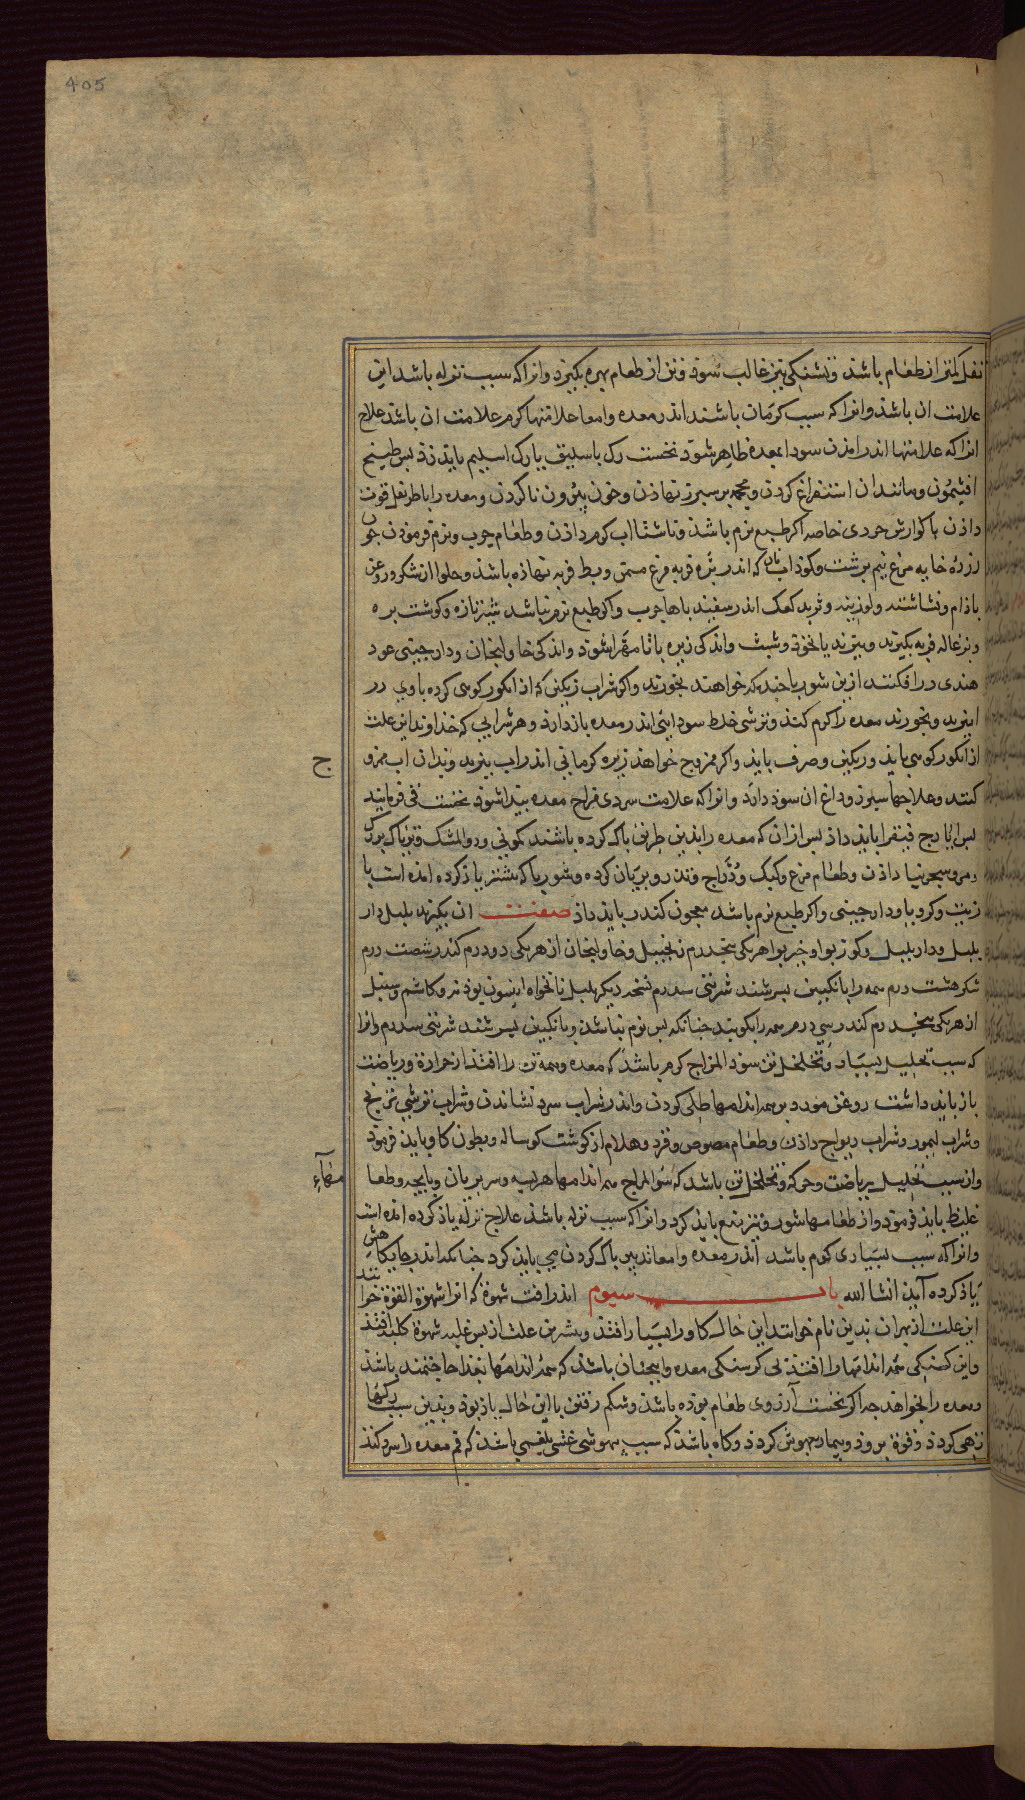 405
ثفل کمتر از طعام باشد و تشنکی نیز غالب شود و تن از طعام بهره بکیرد و انرا که سبب نزله باشد این
علامت ان باشد و انرا که سبب کرمان باشند اندر معده و امعا علامتها کرم علامت ان باشد علاج
انرا که علامتها اندر امذن سودا بمعده ظاهر شود نخست رک باسلیق یا رک اسیلم باید زد بس طبیخ
افتیمون و مانند ان استفراغ کردن و محجمه بر سبرز نهادن و خون بیرون ناکردن و معده را باطریفل قوت
دادن یا کوارش خوزی خاصه اکر طبع نرم باشد و ناشتا اب کرم دادن و طعام چرب و نرم فرمودن چون
زرده خایه مرغ نیم برشت و کوذاب نان که اندر بره فربه مرغ مسمن و بط فربه نهاده باشد و حلوا از شکر و روغن
باذام و نشاسته و لوزینه و ثرید کعک اندر سفیذ باها چرب و اکر طبع نرم نباشد شیر تازه و کوشت بره
و بزغاله فربه بکیرند و ببزند با نخود و شبت و اندکی زیره تا مهرا شود و اندکی خاولنجان و دارجینی عود
هندی در افکنند از این شوربا جندانکه خواهند بخورند و اکر شراب زنکین که از انکور کوهی کرده باوی در
امیزند و بخورند معده را کرم کند و ترشی خلط سودایی اندر معده باز دارد و هر شرابی که خداوند این علت
از انکور کوهی باید و رنکین و صرف باید و اکر ممزوج خواهد زیره کرمانی اندر اب ببزند و بدان اب ممزو
ج
کنند و علاجها سبرز و داغ ان سود دارد و انرا که علامت سردی مزاج معده بیدا شود نخست قی فرمایند
بس ایارج فیقرا باید داد بس از ان که معده را بدین طریق باک کرده باشند کمونی و دوالمشک و تریاک بزرک
و معجر نیا دادن و طعام مرغ و کبک و دراج و تدرو بریان کرده و شوربا که بیشتر یاد کرده امده است با
زیت و کرویا و دارجینی و اکر طبع نرم باشد معجون کندر باید داد صفت ان بکیرند بلبل دار
بلبل و دار بلبل و کوز بوا و خیر بوا هر یکی بنج درم زنجبیل و خاولنجان از هر یکی دو درم کندر شصت درم
شکر هشت درم همه را بانکبین بسرشند شربتی سه درم نسخه دیکر بلبل نانخواه انیسون بوذنه و کاشم و سنبل
از هر یکی بنج درم کندر سی درم همه را بکوبند جنانکه بس نرم نباشد و بانکبین بسرشند شربتی سه درم و انرا
که سبب تحلیل بسیار و تخلخل تن سوء المزاج کرم باشد که معده و همه تن را افتد از حرارة و ریاضت
باز باید داشت روغن مورد بر همه اندامها طلی کردن و اندر شراب سرد نشاندن و شراب ترشی ترنج
و شراب لیمو و شراب ریواج دادن و طعام مصوص و قرد و هلام از کوشت کوساله و بطون کاو باید فرمود
و از سبب تحلیل بریاضت و حرکه و تخلخل تن باشد که سوء المزاج همه اندامها هریسه و سر بریان و بایجه و طعا
مهاء
غلیظ باید فرمود و از طعامها شور و تیز منع باید کرد و انرا که سبب نزله باشد علاج نزله یاد کرده امده است
و انرا که سبب بسیاری کرم باشد اندر معده و امعا تدبیر باک کردن می باید کرد جنانکه اندر جایکاهش
یاد کرده آید انشا الله باب سیوم اندر افت شهوة که انرا شهوة القوة خوانند
این علت از بهر ان بدین نام خوانند این حال کاو را بسیار افتد و بیشتر این علت از بس غلبه شهوة کلبه افتد
و این کسنکی همه اندامها را افتد نی کرسنکی معده و ایجنان باشد که همه اندامها بغذا حاجتمند باشد
و معده را نخواهد جه اکر نخست آرزوی طعام بوده باشد و شکم رفتن با این حال یار بود و بدین سبب رکها
تهی کردد و قوة برود و بیمار بیهوش کردد و کاه باشد که سبب بیهوشی غشی بلغمی باشد که فم معده را سرد کند